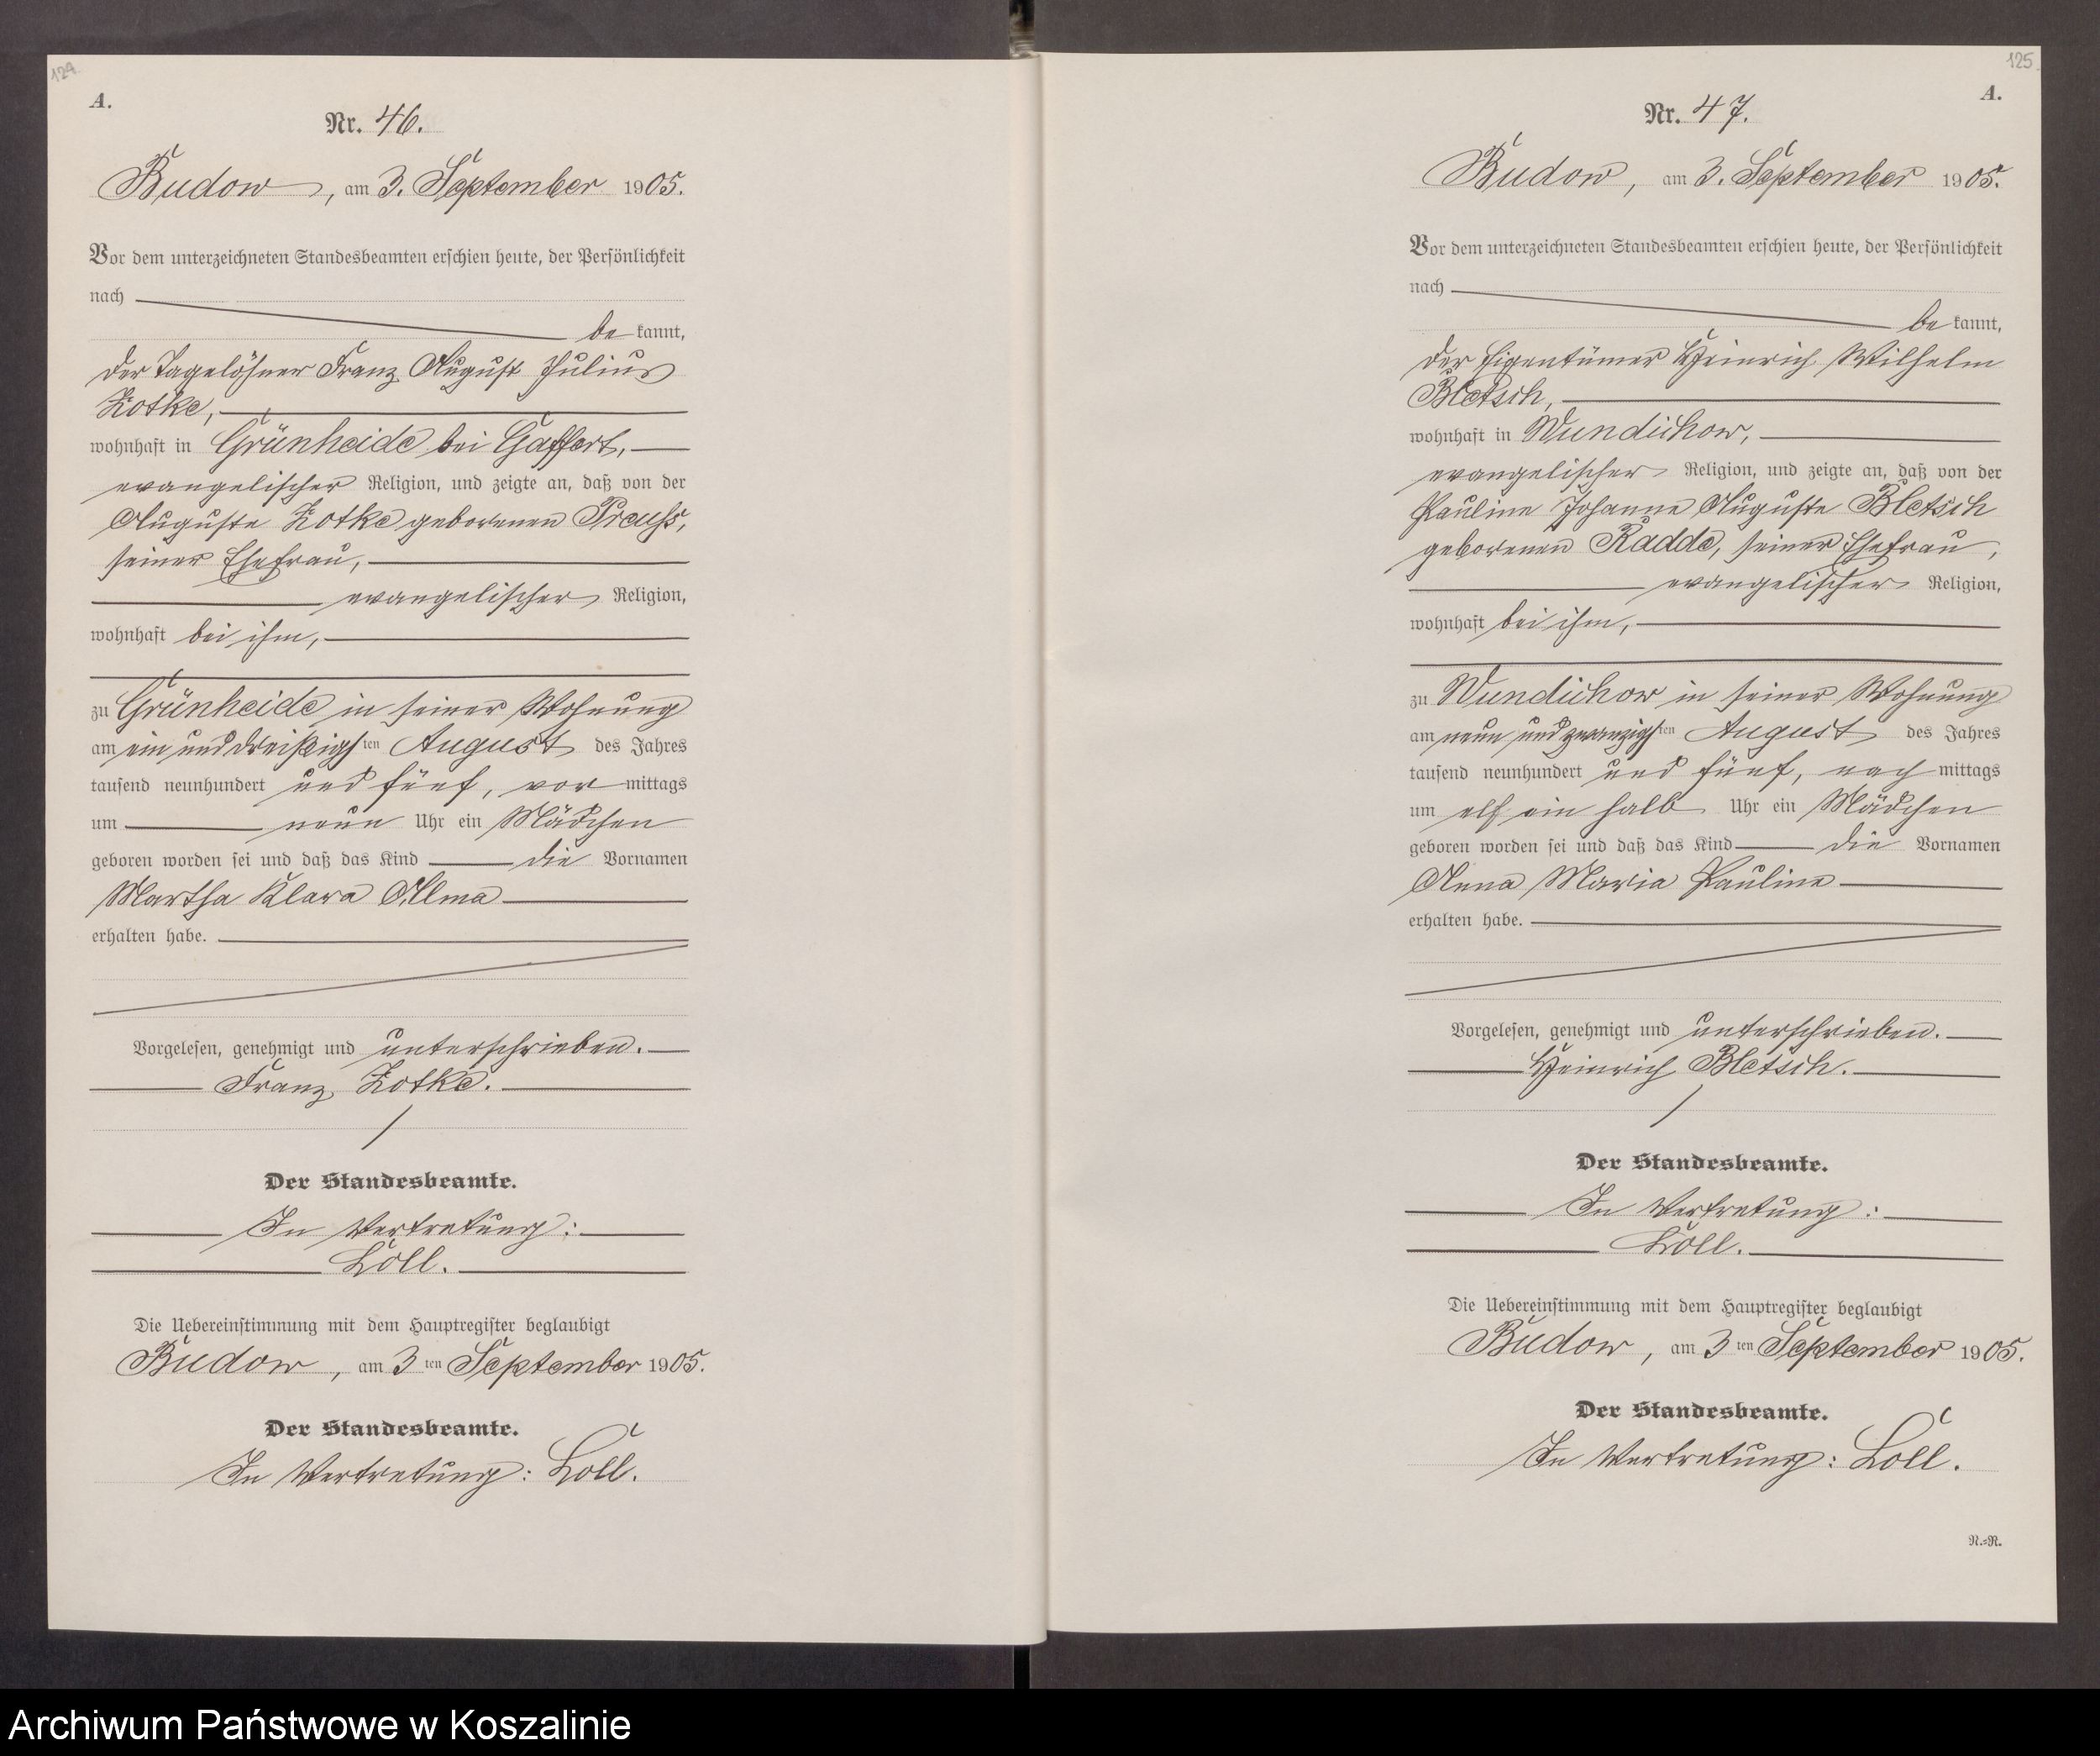 124
A.
Nr. 46.
Budow, am 3. September 1905.
Vor dem unterzeichneten Standesbeamten erschien heute, der Persönlichkeit
nach
be kannt,
der Tagelöhner Franz August Julius
Zotke,
wohnhaft in Grünheide bei Gaffert,
evangelischer Religion, und zeigte an, daß von der
Auguste Zotke geborenen Preuß,
seiner Ehefrau,
evangelischer Religion,
wohnhaft bei ihm,
zu Grünheide in seiner Wohnung
am ein und dreißigsten August des Jahres
tausend neunhundert und fünf, vor mittags
um neun Uhr ein Mädchen
geboren worden sei und daß das Kind die Vornamen
Martha Klara Alma
erhalten habe.
Vorgelesen, genehmigt und unterschrieben.
Franz Zotke.
Der Standesbeamte.
In Vertretung:
Loll.
Die Uebereinstimmung mit dem Hauptregister beglaubigt
Budow, am 3 ten September 1905.
Der Standesbeamte.
In Vertretung: Loll.
125
A.
Nr. 47.
Budow, am 3. September 1905.
Vor dem unterzeichneten Standesbeamten erschien heute, der Persönlichkeit
nach
be kannt,
der Eigentümer Heinrich Wilhelm
Bletsch,
wohnhaft in Wundichow,
evangelischer Religion, und zeigte an, daß von der
Pauline Johanne Auguste Bletsch
geborenen Radde, seiner Ehefrau,
evangelischer Religion,
wohnhaft bei ihm,
zu Wundichow in seiner Wohnung
am neun und zwanzigsten August des Jahres
tausend neunhundert und fünf, nach mittags
um elf ein halb Uhr ein Mädchen
geboren worden sei und daß das Kind die Vornamen
Anna Maria Pauline
erhalten habe.
Vorgelesen, genehmigt und unterschrieben.
Heinrich Bletsch.
Der Standesbeamte.
In Vertretung:
Loll.
Die Uebereinstimmung mit dem Hauptregister beglaubigt
Budow, am 3 ten September 1905.
Der Standesbeamte.
In Vertretung: Loll.
N.=R.
Archiwum Państwowe w Koszalinie